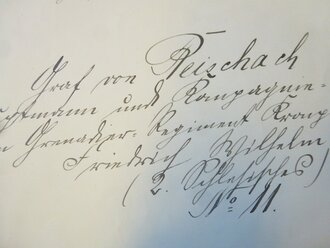 Graf von Reischach
Hauptmann und Kompagnie-
Grenadier-Regiment Kronp
Friedrich Wilhelm
(2. Schlesisches)
No 11.